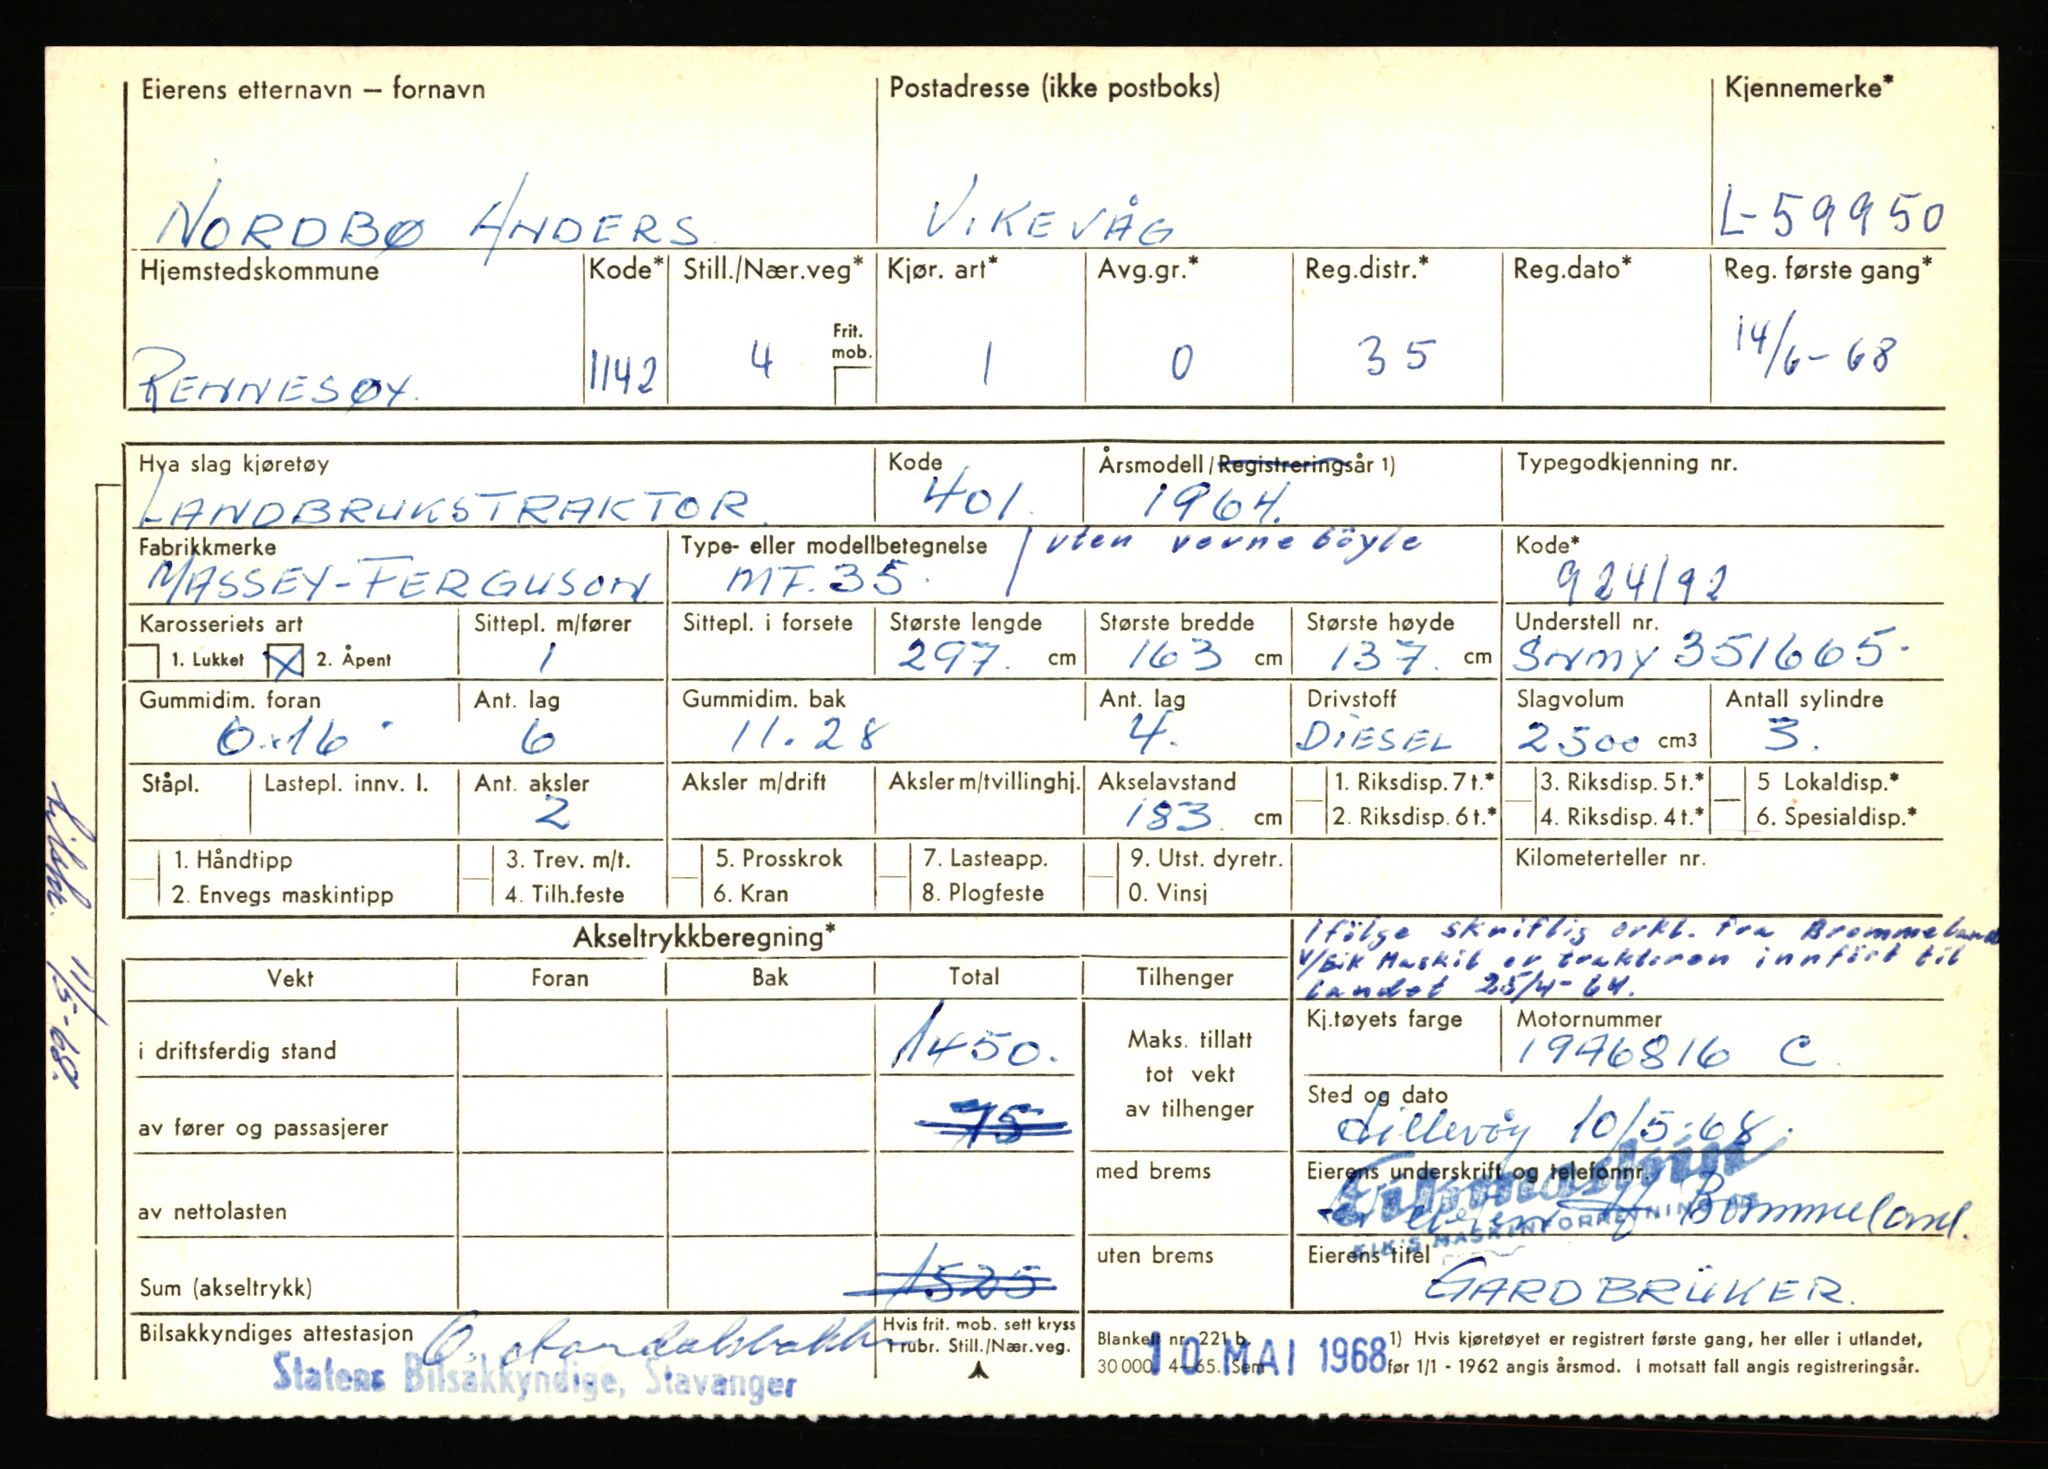 Eierens etternavn — fornavn Postadresse (ikke postboks) Kjennemerke*
NORDBØ ANDERS VIKEVÅG L-59950
Hjemstedskommune Kode* Still./Nær.veg* Kjør. art* Avg.gr.* Reg.distr.* Reg.dato* Reg. første gang*
Frit.
mob.
RENNESØY. 1142 4 1 0 35 14/6-68
Hva slag kjøretøy Kode Årsmodell/Registreringsår 1) Typegodkjenning nr.
LANDBRUKSTRAKTOR. 401. 1964.
Fabrikkmerke Type- eller modellbetegnelse uten vernebøyle Kode*
MASSEY-FERGUSON MF.35. 924192
Karosseriets art Sittepl. m/fører Sittepl. i forsete Største lengde Største bredde Største høyde Understell nr.
1. Lukket X 2. Åpent 1 297. cm 163 cm 137. cm SNMY 351665.
Gummidim. foran Ant. lag Gummidim. bak Ant. lag Drivstoff Slagvolum Antall sylindre
6.16 6 11.28 4. DIESEL 2500 cm3 3.
Ståpl. Lastepl. innv. l. Ant. aksler Aksler m/drift Aksler m/tvillinghj. Akselavstand 1. Riksdisp. 7 t.* 3. Riksdisp. 5 t.* 5 Lokaldisp.*
2 183 cm 2. Riksdisp. 6 t.* 4. Riksdisp. 4 t.* 6. Spesialdisp.*
1. Håndtipp 3. Trev. m/t. 5. Prosskrok 7. Lasteapp. 9. Utst. dyretr. Kilometerteller nr.
2. Envegs maskintipp 4. Tilh.feste 6. Kran 8. Plogfeste 0. Vinsj
Akseltrykkberegning*
Ifølge skriftlig erkl. fra Brommeland
v/Eik Maskin er traktoren innført til
landet 25/4-64.
Vekt Foran Bak Total Tilhenger
Kj.tøyets farge Motornummer
i driftsferdig stand 1450. Maks. tillatt
tot vekt
av tilhenger
1976816 C
Sted og dato
av fører og passasjerer 75
10/5-68.
med brems Eierens underskrift og telefonnr.
Eikmaskin
av nettolasten Brommeland.
EIK'S MASKINFORRETNING
uten brems Eierens titel
Sum (akseltrykk) 1525 GARDBRUKER.
Bilsakkyndiges attestasjon
Hvis frit. mob. sett kryss
i rubr. Still./Nær.veg.
Statens Bilsakkyndige, Stavanger
Blankett nr. 221 b.
30 000. 4—65. Sem
10 MAI 1968
1) Hvis kjøretøyet er registrert første gang, her eller i utlandet,
før 1/1 - 1962 angis årsmod. I motsatt fall angis registreringsår.
11/5-68.